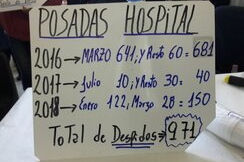 POSADAS HOSPITAL
2016→MARZO 641, y Resto 60= 681
2017→Julio 10; y Resto 30= 40
2018→Enero 122, Marzo 28= 150
ToTal de Despidos→971